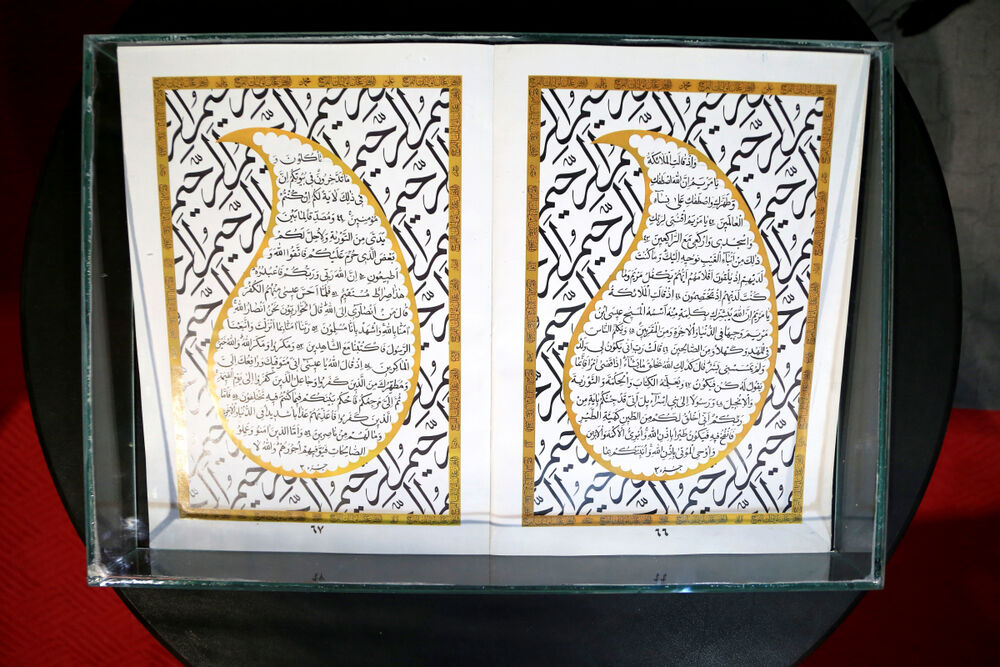 وَاِذْ قَالَتِ الْمَلَائِكَةُ
يَا مَرْيَمُ اِنَّ اللّٰهَ اصْطَفٰيكِ
وَطَهَّرَكِ وَاصْطَفٰيكِ عَلٰى نِسَاءِ
الْعَالَمِينَ ٤٢ يَا مَرْيَمُ اقْنُتِي لِرَبِّكِ
وَاسْجُدِي وَارْكَعِي مَعَ الرَّاكِعِينَ ٤٣
ذٰلِكَ مِنْ اَنْبَاءِ الْغَيْبِ نُوحِيهِ اِلَيْكَ وَمَا كُنْتَ
لَدَيْهِمْ اِذْ يُلْقُونَ اَقْلَامَهُمْ اَيُّهُمْ يَكْفُلُ مَرْيَمَ وَمَا
كُنْتَ لَدَيْهِمْ اِذْ يَخْتَصِمُونَ ٤٤ اِذْ قَالَتِ الْمَلَائِكَةُ
يَا مَرْيَمُ اِنَّ اللّٰهَ يُبَشِّرُكِ بِكَلِمَةٍ مِنْهُ اسْمُهُ الْمَسِيحُ عِيسَى ابْنُ
مَرْيَمَ وَجِيهًا فِي الدُّنْيَا وَالْاٰخِرَةِ وَمِنَ الْمُقَرَّبِينَ ٤٥ وَيُكَلِّمُ النَّاسَ
فِي الْمَهْدِ وَكَهْلًا وَمِنَ الصَّالِحِينَ ٤٦ قَالَتْ رَبِّ اَنّٰى يَكُونُ لِي وَلَدٌ
وَلَمْ يَمْسَسْنِي بَشَرٌ قَالَ كَذٰلِكِ اللّٰهُ يَخْلُقُ مَا يَشَاءُ اِذَا قَضٰى اَمْرًا فَاِنَّمَا
يَقُولُ لَهُ كُنْ فَيَكُونُ ٤٧ وَيُعَلِّمُهُ الْكِتَابَ وَالْحِكْمَةَ وَالتَّوْرٰيةَ
وَالْاِنْجِيلَ ٤٨ وَرَسُولًا اِلٰى بَنِي اِسْرَائِيلَ اَنِّي قَدْ جِئْتُكُمْ بِاٰيَةٍ مِنْ
رَبِّكُمْ اَنِّي اَخْلُقُ لَكُمْ مِنَ الطِّينِ كَهَيْئَةِ الطَّيْرِ
فَاَنْفُخُ فِيهِ فَيَكُونُ طَيْرًا بِاِذْنِ اللّٰهِ وَاُبْرِئُ الْاَكْمَهَ وَالْاَبْرَصَ
وَاُحْيِ الْمَوْتٰى بِاِذْنِ اللّٰهِ وَاُنَبِّئُكُمْ بِمَا
جزء ٣
٦٦
تَأْكُلُونَ وَ
مَا تَدَّخِرُونَ فِي بُيُوتِكُمْ اِنَّ
فِي ذٰلِكَ لَاٰيَةً لَكُمْ اِنْ كُنْتُمْ
مُؤْمِنِينَ ٤٩ وَمُصَدِّقًا لِمَا بَيْنَ
يَدَيَّ مِنَ التَّوْرٰيةِ وَلِاُحِلَّ لَكُمْ
بَعْضَ الَّذِي حُرِّمَ عَلَيْكُمْ فَاتَّقُوا اللّٰهَ وَ
اَطِيعُونِ ٥٠ اِنَّ اللّٰهَ رَبِّي وَرَبُّكُمْ فَاعْبُدُوهُ
هٰذَا صِرَاطٌ مُسْتَقِيمٌ ٥١ فَلَمَّا اَحَسَّ عِيسٰى مِنْهُمُ الْكُفْرَ
قَالَ مَنْ اَنْصَارِي اِلَى اللّٰهِ قَالَ الْحَوَارِيُّونَ نَحْنُ اَنْصَارُ اللّٰهِ
اٰمَنَّا بِاللّٰهِ وَاشْهَدْ بِاَنَّا مُسْلِمُونَ ٥٢ رَبَّنَا اٰمَنَّا بِمَا اَنْزَلْتَ وَاتَّبَعْنَا
الرَّسُولَ فَاكْتُبْنَا مَعَ الشَّاهِدِينَ ٥٣ وَمَكَرُوا وَمَكَرَ اللّٰهُ وَاللّٰهُ خَيْرُ
الْمَاكِرِينَ ٥٤ اِذْ قَالَ اللّٰهُ يَا عِيسٰى اِنِّي مُتَوَفِّيكَ وَرَافِعُكَ اِلَيَّ
وَمُطَهِّرُكَ مِنَ الَّذِينَ كَفَرُوا وَجَاعِلُ الَّذِينَ اتَّبَعُوكَ فَوْقَ الَّذِينَ كَفَرُوا اِلٰى يَوْمِ الْقِيٰمَةِ
ثُمَّ اِلَيَّ مَرْجِعُكُمْ فَاَحْكُمُ بَيْنَكُمْ فِيمَا كُنْتُمْ فِيهِ تَخْتَلِفُونَ ٥٥ فَاَمَّا
الَّذِينَ كَفَرُوا فَاُعَذِّبُهُمْ عَذَابًا شَدِيدًا فِي الدُّنْيَا وَالْاٰخِرَةِ
وَمَا لَهُمْ مِنْ نَاصِرِينَ ٥٦ وَاَمَّا الَّذِينَ اٰمَنُوا وَعَمِلُوا
الصَّالِحَاتِ فَيُوَفِّيهِمْ اُجُورَهُمْ وَاللّٰهُ لَا
جزء ٣
٦٧